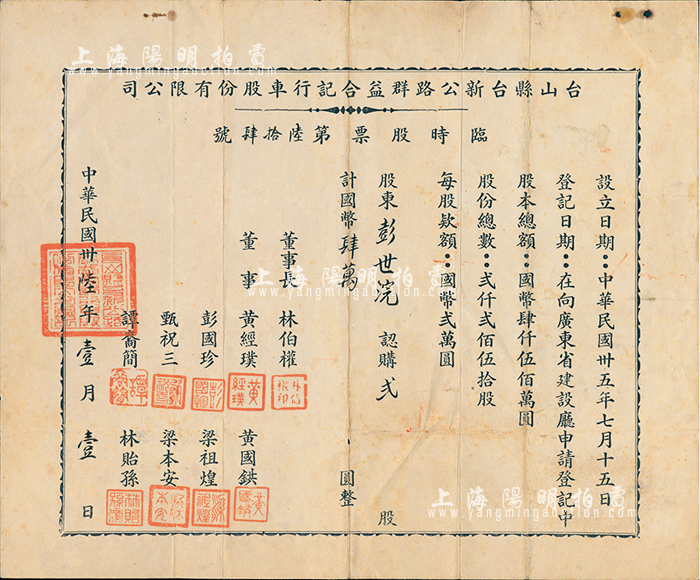 台山縣台新公路群益合記行車股份有限公司
臨時股票第陸拾肆號
設立日期：中華民國卅五年七月十五日
登記日期：在向廣東省建設廳申請登記中
股本總額：國幣肆仟伍佰萬圓
股份總數：弍仟弍佰伍拾股
每股欵額：國幣弍萬圓
股東彭世浣認購弍股
計國幣肆萬圓整
董事長 林伯權
董事 黃經璞 黃國鉷
彭國珍 梁祖煌
甄祝三 梁本安
譚裔簡 林貽孫
中華民國卅陸年壹月壹日
上海陽明拍賣
www.yangmingauction.com
上海陽明拍賣
www.yangmingauction.com
上海陽明拍賣
www.yangmingauction.com